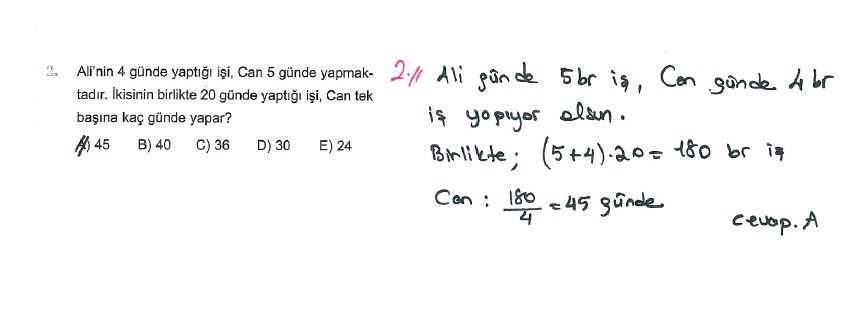 2. Ali'nin 4 günde yaptığı işi, Can 5 günde yapmak-
tadır. İkisinin birlikte 20 günde yaptığı işi, Can tek
başına kaç günde yapar?
A) 45 B) 40 C) 36 D) 30 E) 24
2.// Ali günde 5br iş, Can günde 4 br
iş yapıyor olsun.
Birlikte; (5+4).20= 180 br iş
Can : 180/4 = 45 günde
cevap. A